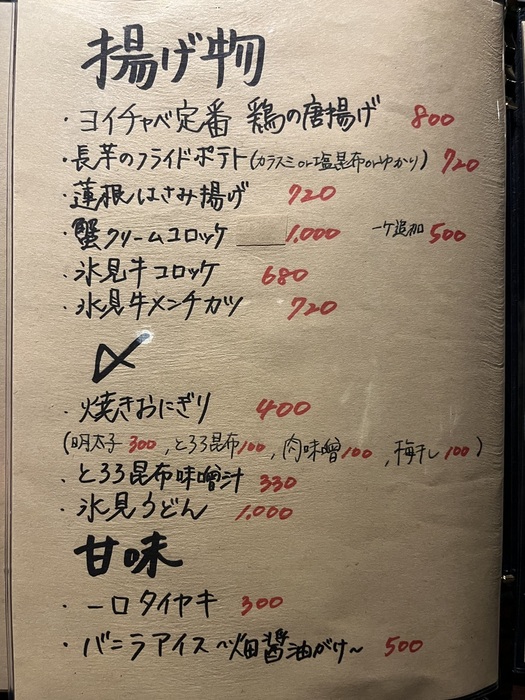 揚げ物
・ヨイチャベ定番 鶏の唐揚げ 800
・長芋のフライドポテト(カラスミor塩昆布orゆかり) 720
・蓮根はさみ揚げ 720
・蟹クリームコロッケ 1,000 一ケ追加 500
・氷見牛コロッケ 680
・氷見牛メンチカツ 720
〆
・焼きおにぎり 400
(明太子 300, とろろ昆布 100, 肉味噌 100, 梅干し 100)
・とろろ昆布味噌汁 330
・氷見うどん 1,000
甘味
・一口タイヤキ 300
・バニラアイス〜畑醤油がけ〜 500